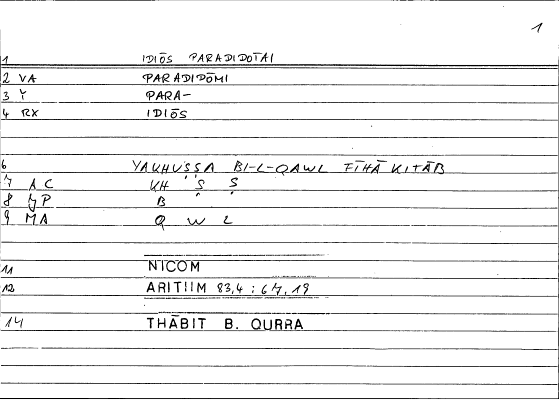 1
1 IDIŌS PARADIDOTAI
2 VA PARADIDŌMI
3 Y PARA-
4 RX IDIŌS
6 YAKHUṢṢA BI-L-QAWL FĪHĀ KITĀB
7 AC KH Ṣ Ṣ
8 YP B
9 MA Q W L
11 NICOM
12 ARITIIM 83,4 : 67,19
14 THĀBIT B. QURRA